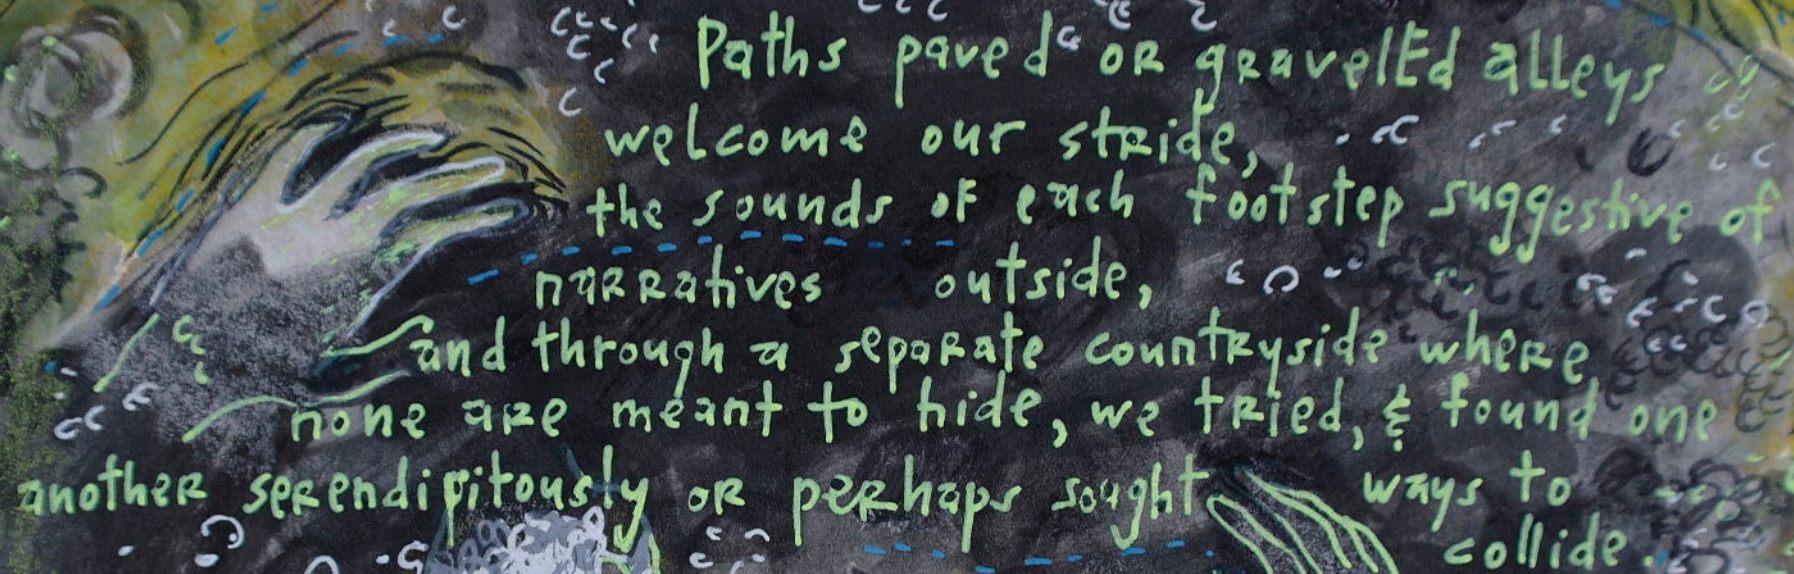 Paths paved or gravelled alleys
welcome our stride,
the sounds of each footstep suggestive of
narratives outside,
and through a separate countryside where
none are meant to hide, we tried, & found one
another serendipitously or perhaps sought ways to
collide.